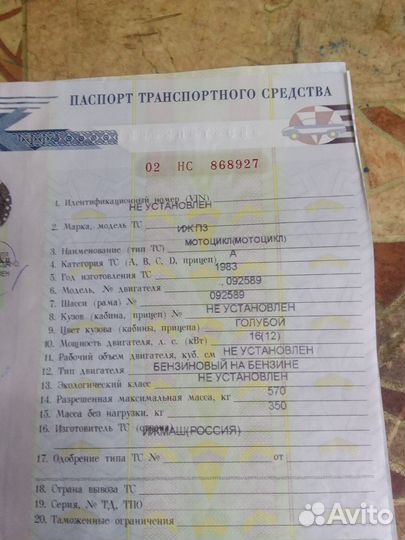 ПАСПОРТ ТРАНСПОРТНОГО СРЕДСТВА
02 НС 868927
1. Идентификационный номер (VIN) НЕ УСТАНОВЛЕН
2. Марка, модель ТС ИЖ П3
3. Наименование (тип ТС) МОТОЦИКЛ(МОТОЦИКЛ)
4. Категория ТС (A, B, C, D, прицеп) A
5. Год изготовления ТС 1983
6. Модель, № двигателя ., 092589
7. Шасси (рама) № 092589
8. Кузов (кабина, прицеп) № НЕ УСТАНОВЛЕН
9. Цвет кузова (кабины, прицепа) ГОЛУБОЙ
10. Мощность двигателя, л. с. (кВт) 16(12)
11. Рабочий объем двигателя, куб. см НЕ УСТАНОВЛЕН
12. Тип двигателя БЕНЗИНОВЫЙ НА БЕНЗИНЕ
13. Экологический класс НЕ УСТАНОВЛЕН
14. Разрешенная максимальная масса, кг 570
15. Масса без нагрузки, кг 350
16. Изготовитель ТС (страна) ИЖМАШ(РОССИЯ)
17. Одобрение типа ТС № от
18. Страна вывоза ТС
19. Серия, № ТД, ТПО
20. Таможенные ограничения
Avito